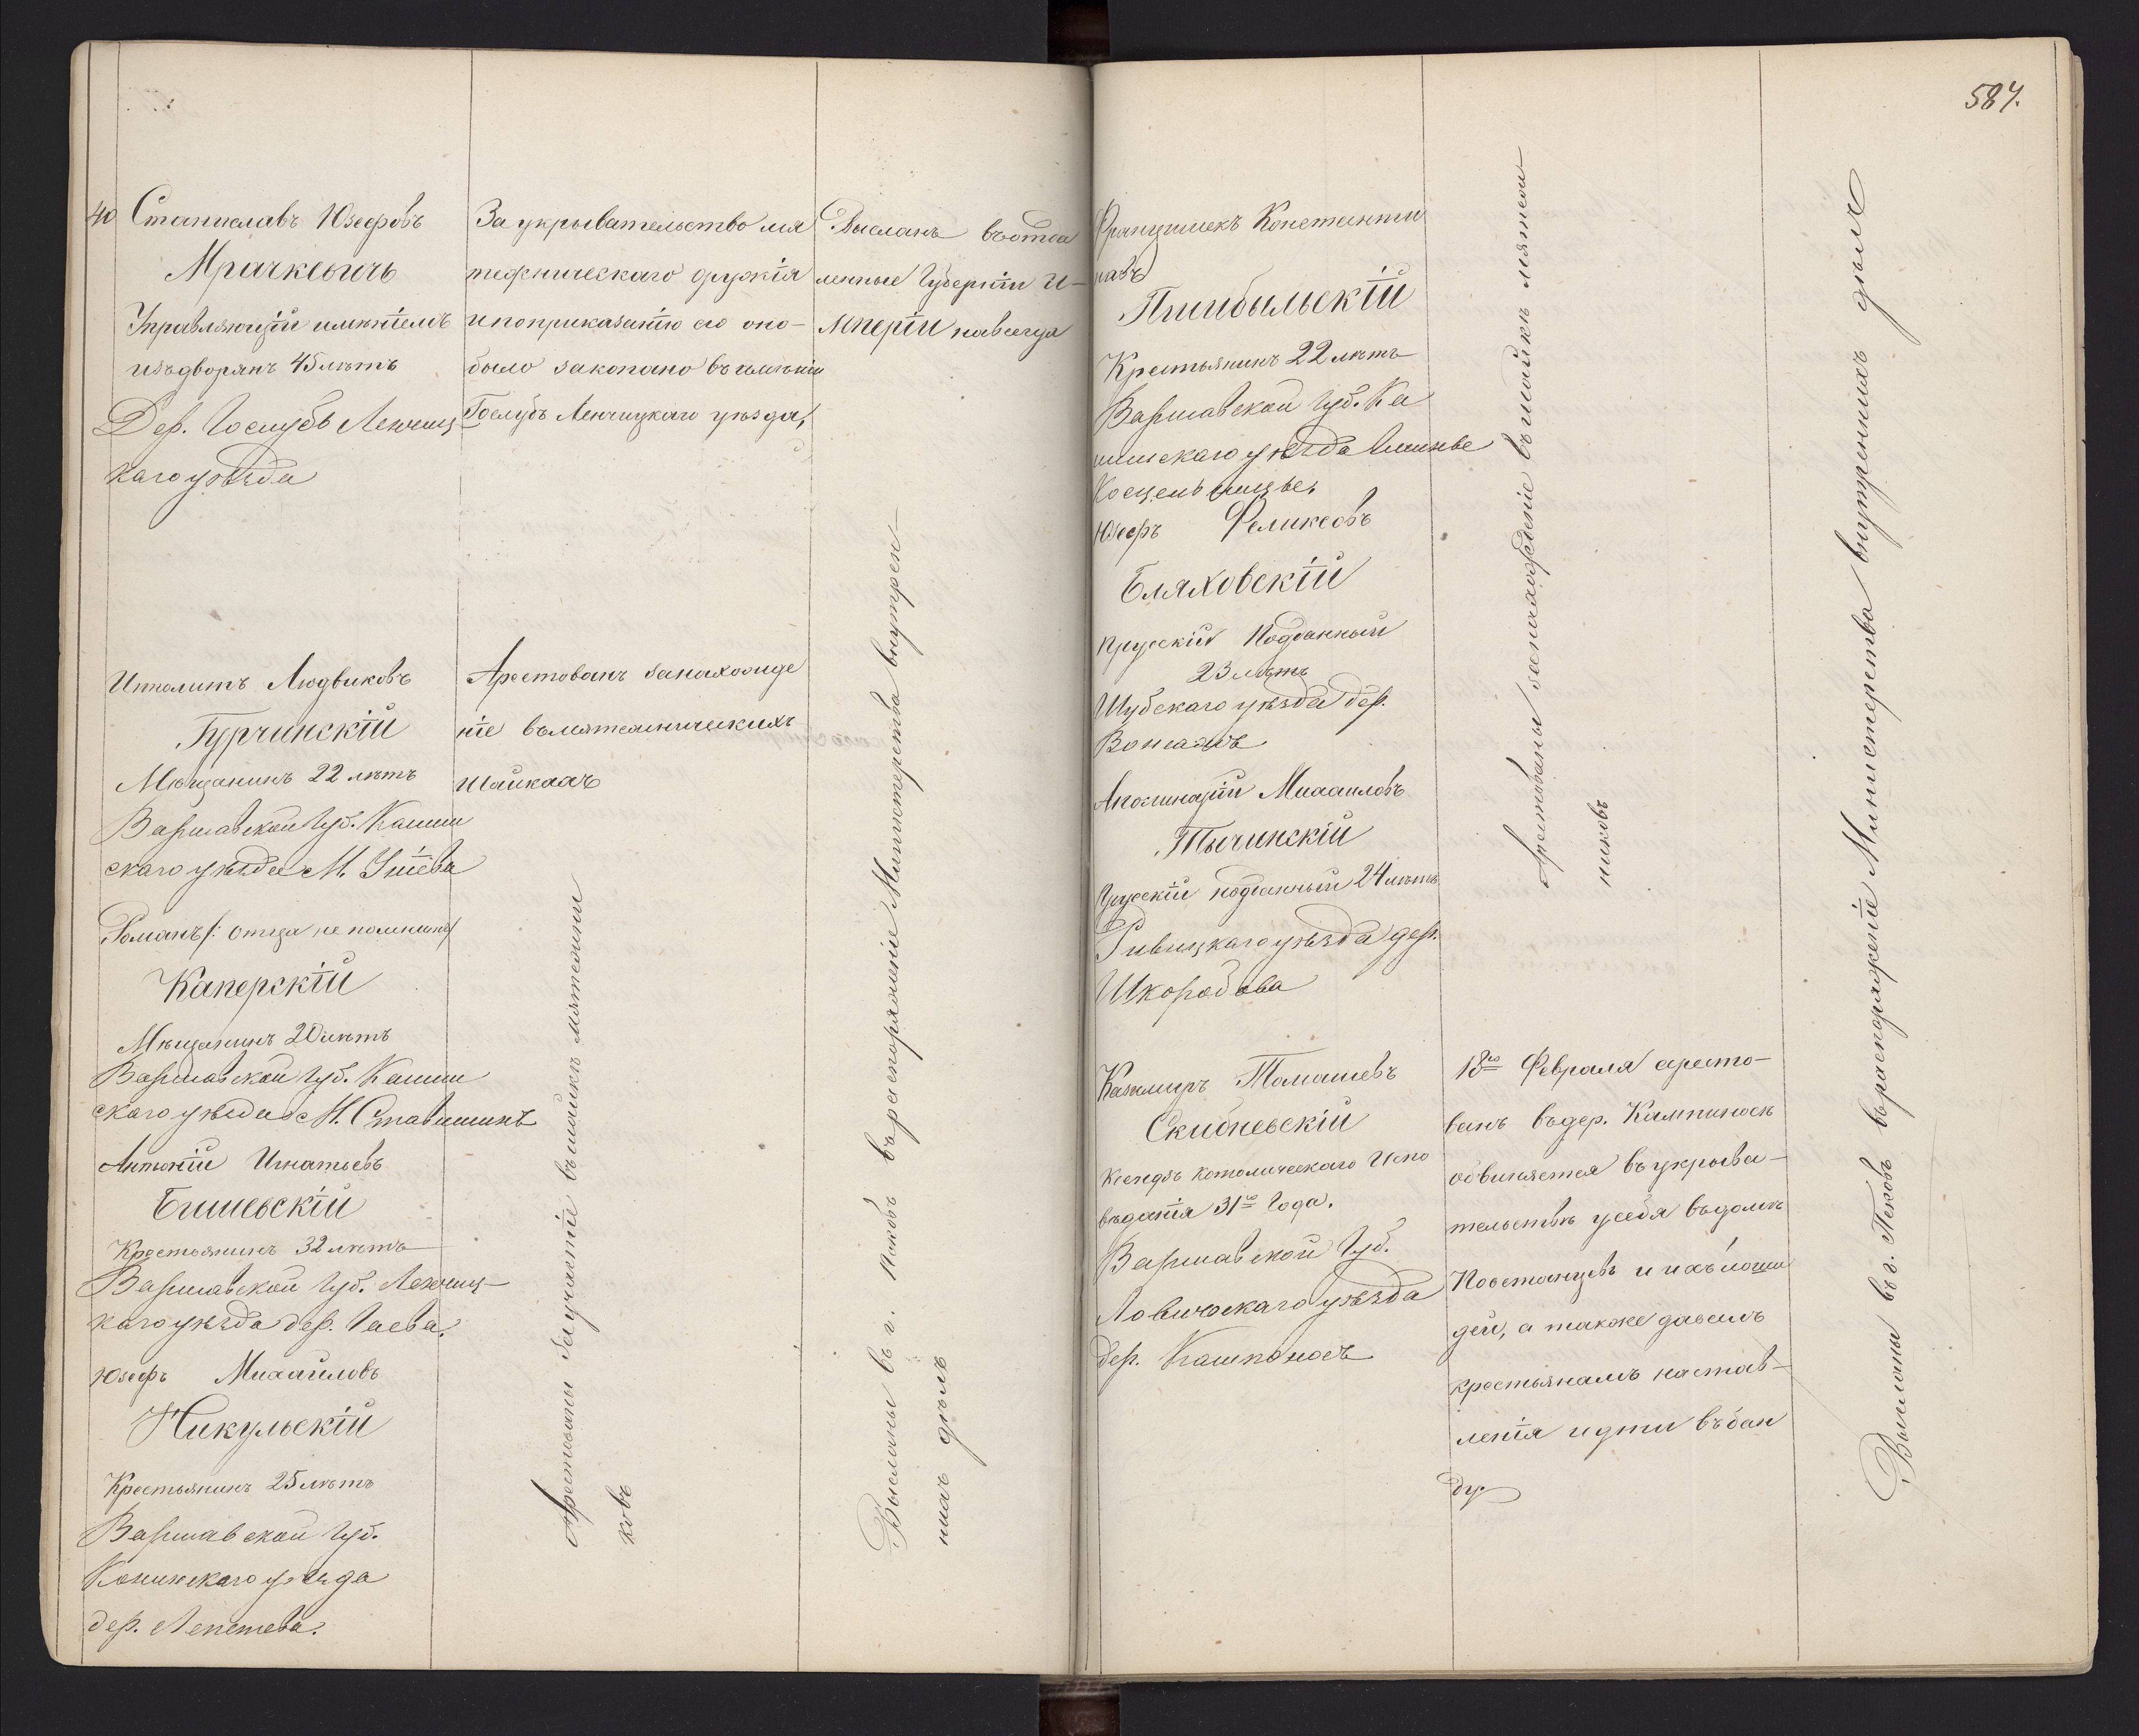 40
Станиславъ Юзефовъ
Мрачкевичъ
Управляющій имѣніемъ
изъ дворянъ 45 лѣтъ
Дер. Гослубъ Ленчиц
каго уѣзда
За укрывательство мя
тежническаго оружія
и по приказанію его оно-
было закопано въ имѣніи
Гослубъ Ленчицкаго уѣзда,
Высланъ въ отда
ленные Губерніи И-
мперіи навсегда
Ипполитъ Людвиковъ
Гурчинскій
Мѣщанинъ 22 лѣтъ
Варшавской Губ. Калиш
скаго уѣзда М.
Арестованъ за нахожде
ніе въ мятежническихъ
шайкахъ
Романъ /: отца не помнитъ/
Каперскій
Мѣщанинъ 20 лѣтъ
Варшавской Губ. Калиш
скаго уѣзда М. Ставишинъ
Антоній Игнатьевъ
Бишевскій
Крестьянинъ 32 лѣтъ
Варшавской Губ. Ленчиц-
каго уѣзда дер. Гаева.
Юзефъ Михайловъ
Никульскій
Крестьянинъ 25 лѣтъ
Варшавской Губ.
Конинскаго уѣзда
дер.
Арестованы за участіе въ шайкѣ мятежни
ковъ
Высланы въ г. Псковъ въ распоряженіе Министерства внутрен-
нихъ дѣлъ
587.
Францишекъ Константи
новъ
Пшибыльскій
Крестьянинъ 22 лѣтъ
Варшавской Губ. Ка
лишскаго уѣзда
Юзефъ Феликсовъ
Бляховскій
Прусскій Подданный
23 лѣтъ
Шубскаго уѣзда дер.
Аполинарій Михаиловъ
Тычинскій
Прусскій подданный 24 лѣтъ
уѣзда дер.
Шкородова
Арестованы за нахожденіе въ шайкѣ мятеж
никовъ
Казимиръ Томашевъ
Скибневскій
Ксендзъ католическаго Испо
вѣданія 31го Года.
Варшавской Губ.
Ловичскаго уѣзда
дер. Кампиносъ
18го Февраля аресто-
ванъ въ дер. Кампиносъ
обвиняется въ укрыва-
тельствѣ у себя въ домѣ
Повстанцевъ и ихъ лоша
дей, а также давалъ
крестьянамъ настав-
ленія идти въ бан
ду.
Высланы въ г. Псковъ въ распоряженіе Министерства внутреннихъ дѣлъ